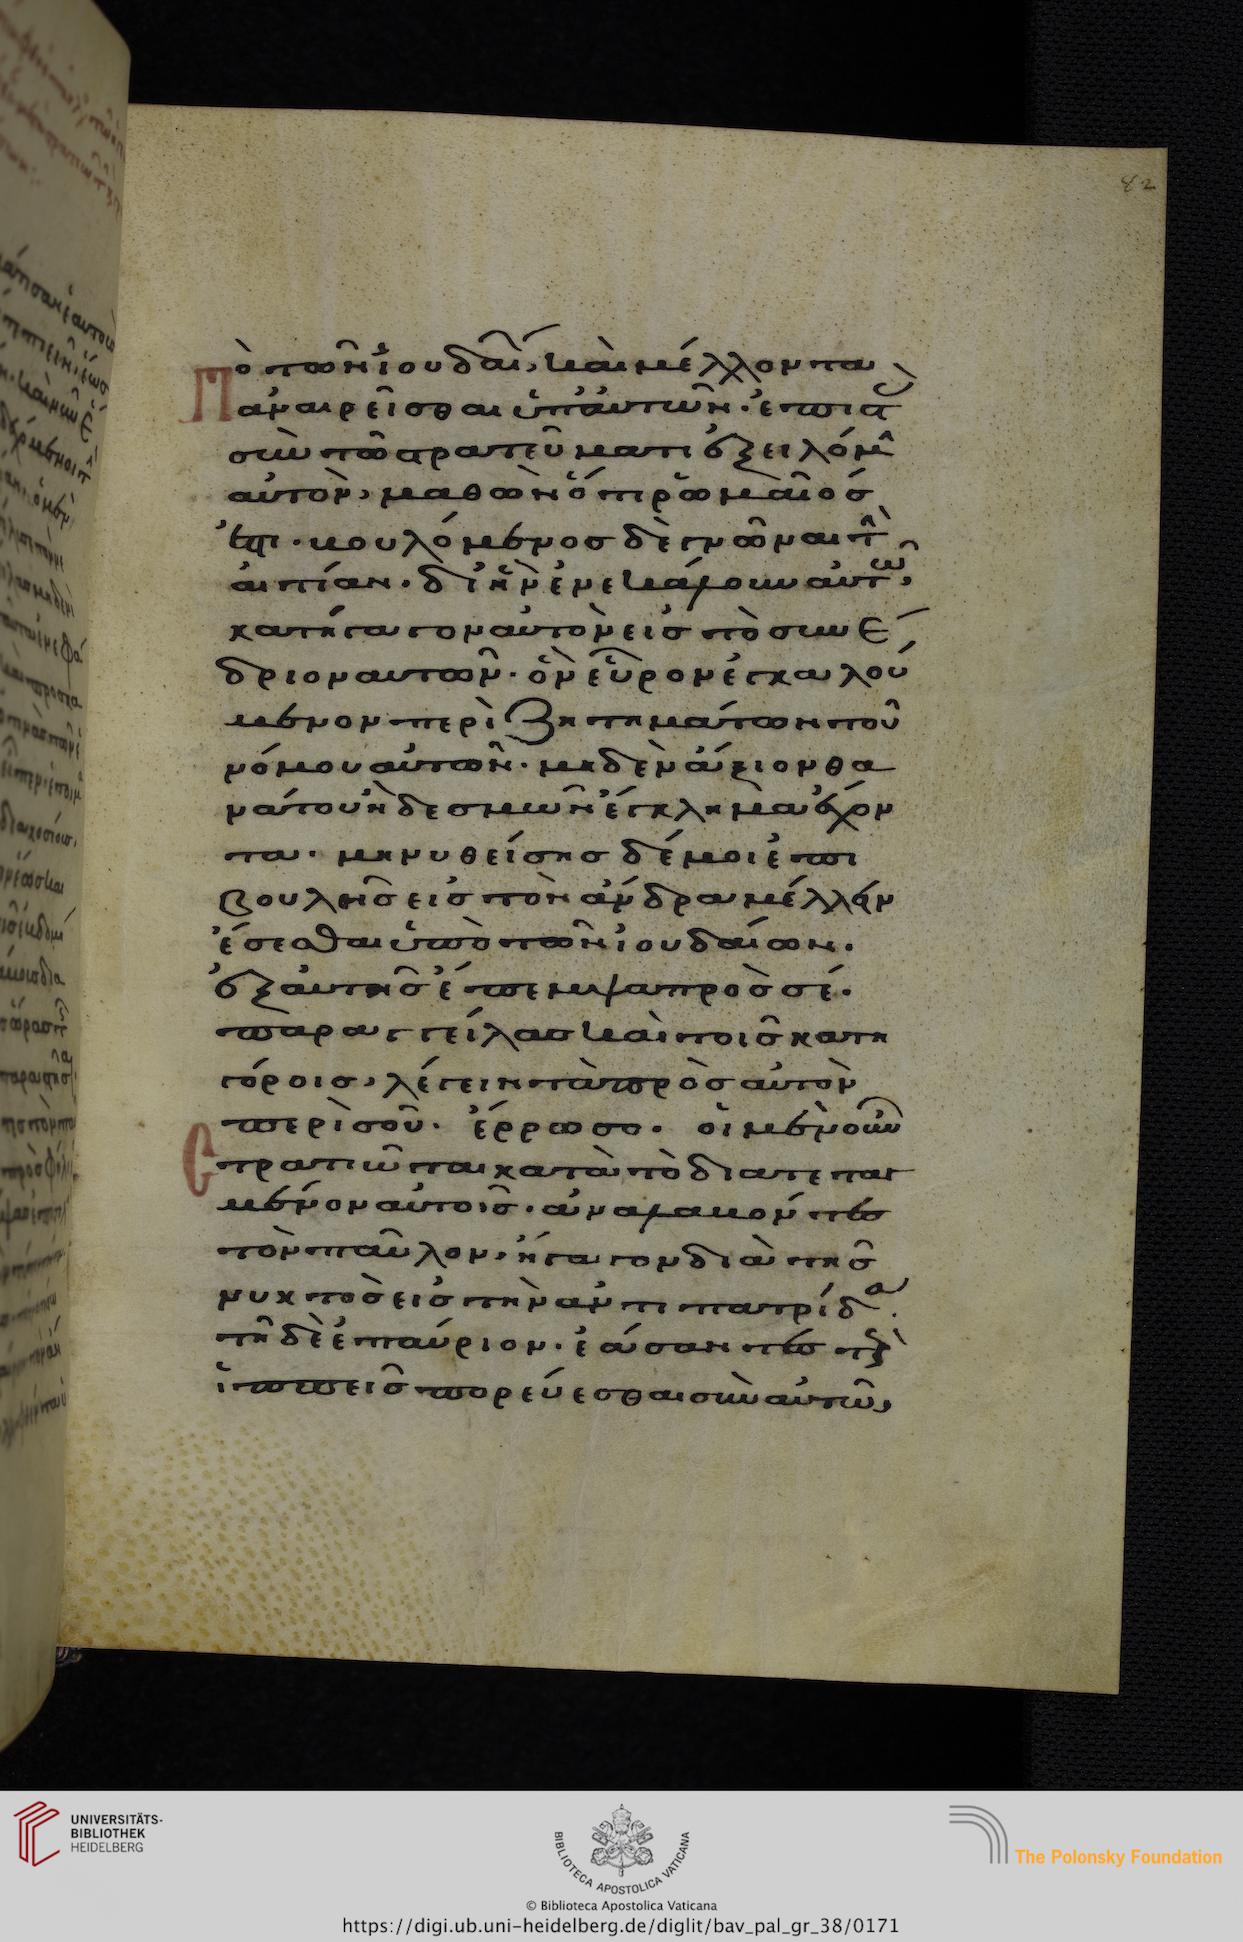 82
πὸ τῶν ἰουδαί, καὶ μέλλοντα
ἀναιρεῖσθαι ὑπ' αὐτῶν· ἐπιστ
σὺν τῶ στρατεύματι ἐξειλόμ
αὐτὸν, μαθὼν ὅτι ῥωμαῖος
ἐστι· βουλόμενος δὲ γνῶναι τ
αἰτίαν· δι' ἣν ἐνεκάλουν αὐτῶ,
κατήγαγον αὐτὸν εἰς τὸ συνέ
δριον αὐτῶν· ὃν εὗρον ἐγκαλού
μενον περὶ ζητημάτων τοῦ
νόμου αὐτῶν· μηδὲν ἄξιον θα
νάτου ἢ δεσμῶν ἔγκλημα ἔχον
τα· μηνυθείσης δέ μοι ἐπι
βουλῆς εἰς τὸν ἄνδρα μέλλειν
ἔσεσθαι ὑπὸ τῶν ἰουδαίων·
ἐξ αὐτῆς ἔπεμψα πρὸς σέ·
παραγγείλας καὶ τοῖς κατη
γόροις, λέγειν τὰ πρὸς αὐτὸν
περὶ σοῦ· ἔρρωσο· οἱ μὲν οὖν
στρατιῶται κατὰ τὸ διατεταγ
μένον αὐτοῖς· ἀναλαβόντες
τὸν παῦλον, ἤγαγον διὰ τῆς
νυκτὸς εἰς τὴν ἀντιπατρίδα·
τῆ δὲ ἐπαύριον· ἐάσαντες τοὺς
ἱππεῖς πορεύεσθαι σὺν αὐτῶ,
UNIVERSITÄTS-
BIBLIOTHEK
HEIDELBERG
BIBLIOTECA APOSTOLICA VATICANA
The Polonsky Foundation
© Biblioteca Apostolica Vaticana
https://digi.ub.uni-heidelberg.de/diglit/bav_pal_gr_38/0171